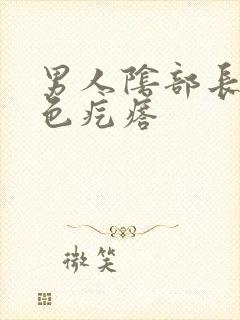 男人陰部長
色疙瘩
微笑